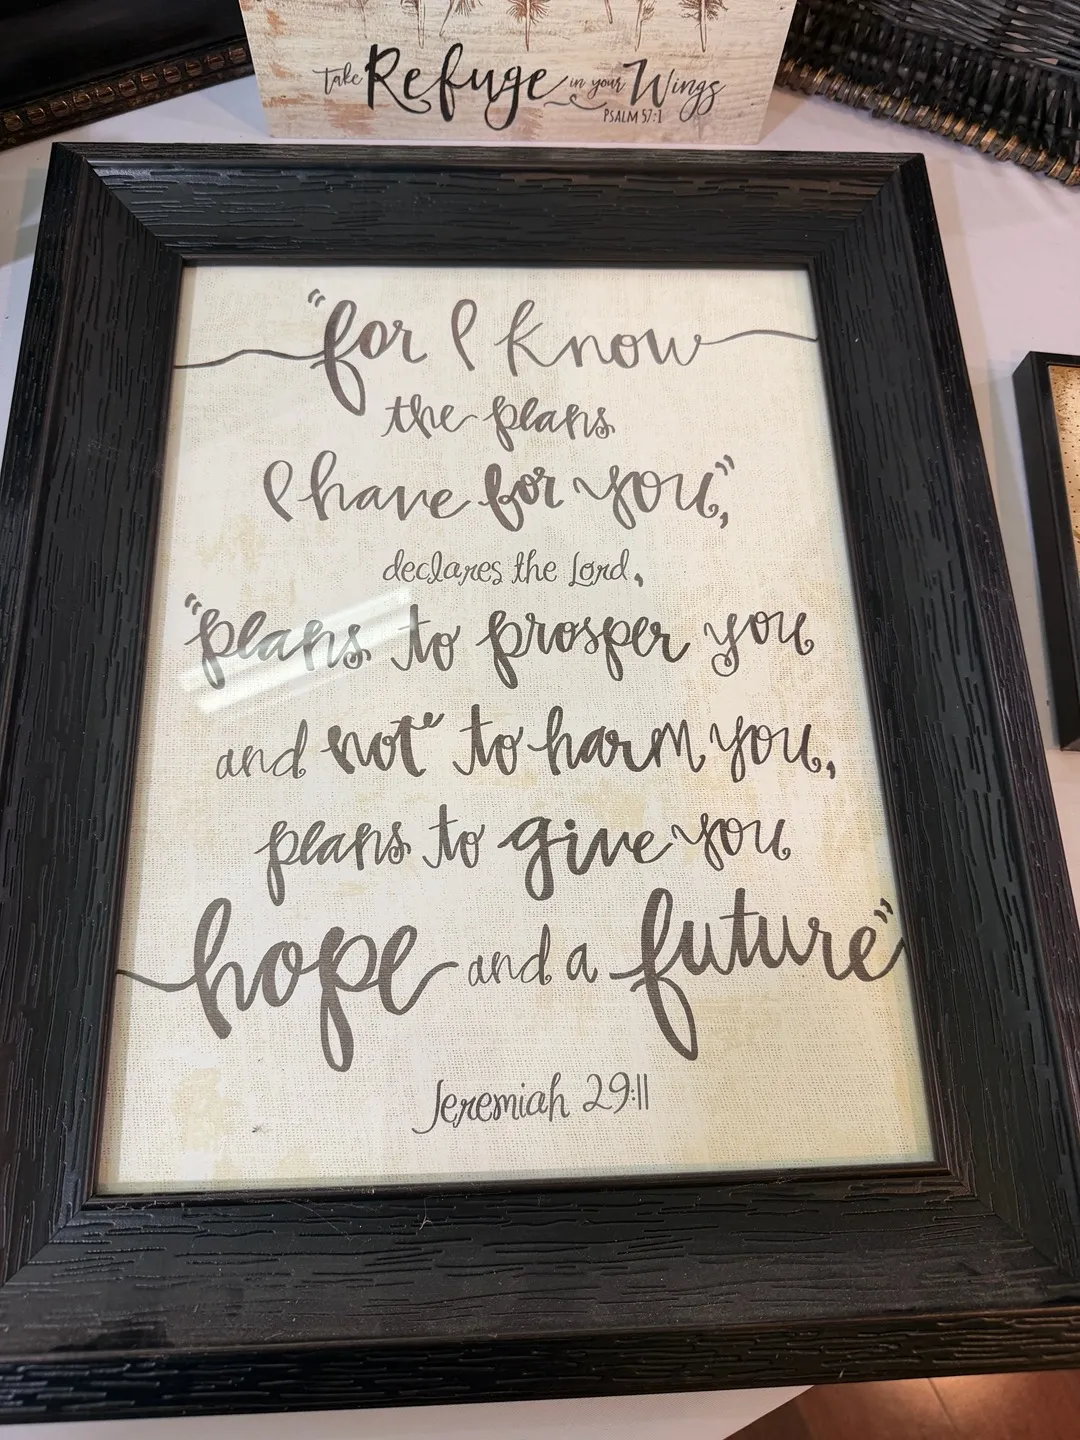 take Refuge in your Wings
PSALM 57:1
"for I know
the plans
I have for you,"
declares the Lord,
"plans to prosper you
and not" to harm you,
plans to give you
hope and a future"
Jeremiah 29:11